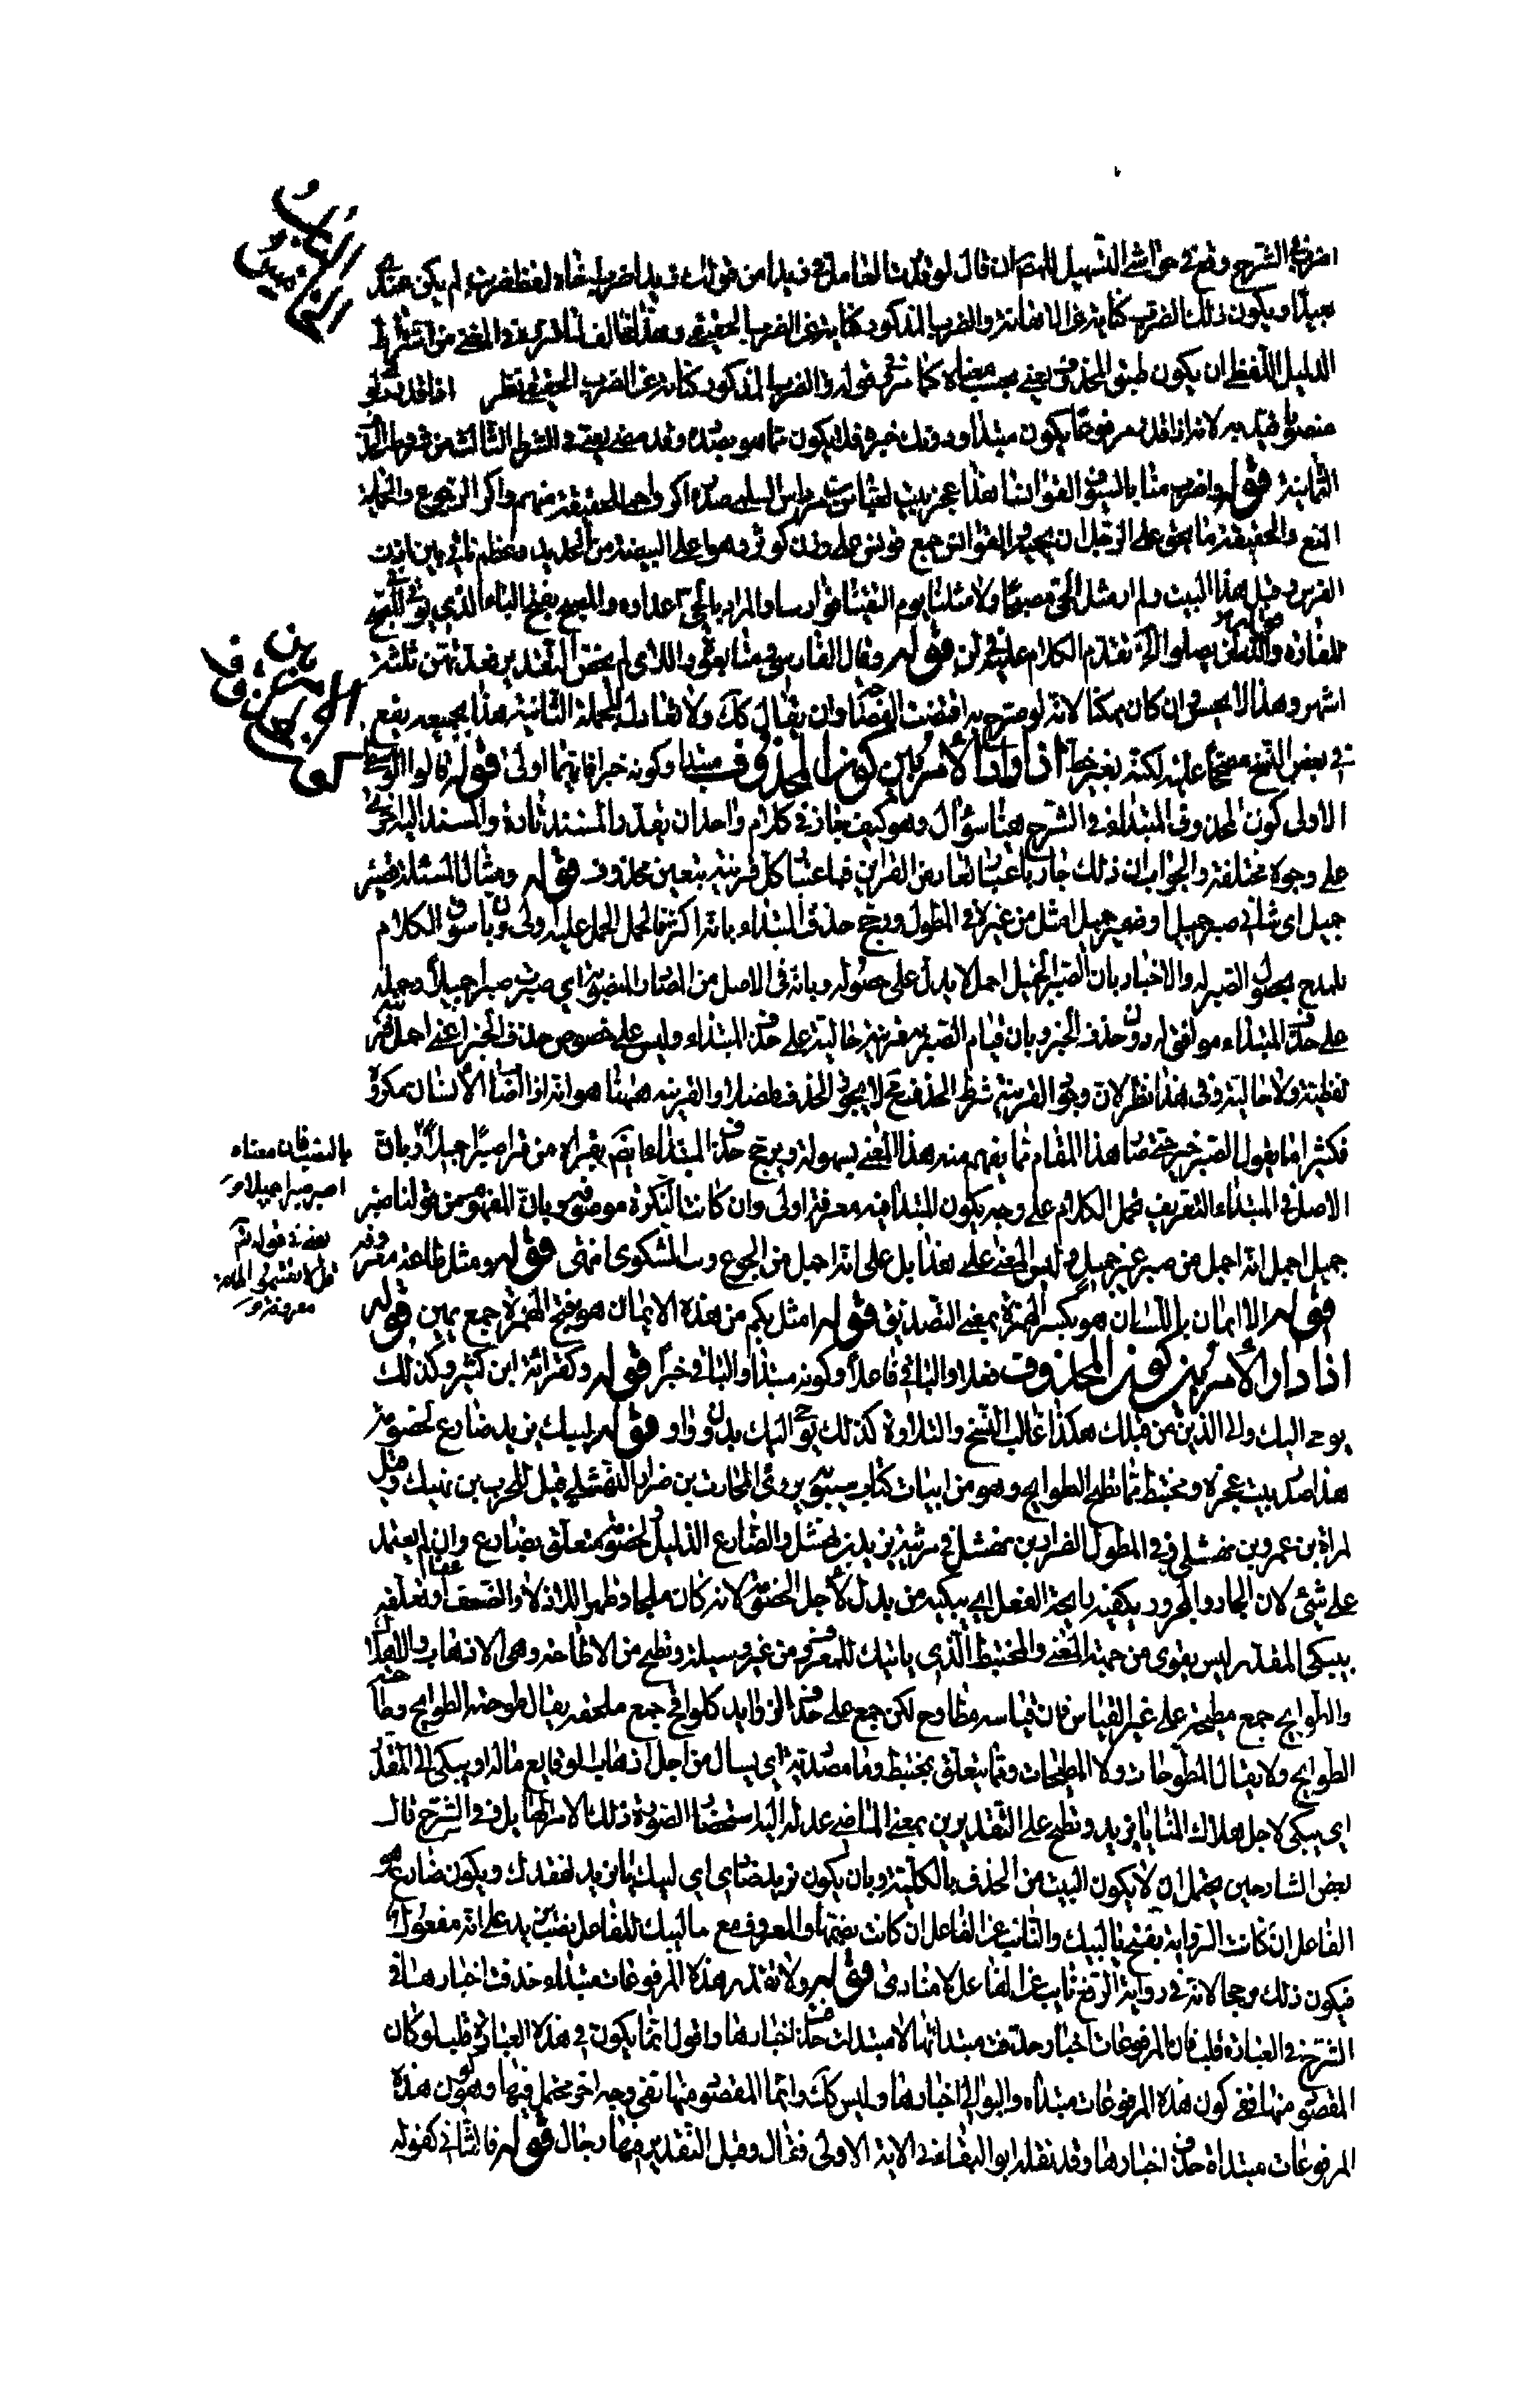 اضرب في الشرح وقع في حواشي التسهيل للمص ان قال لو قدرت العامل في زيدا من قولك زيدا ضربت اخاه لفظ ضربت لم يكن
ويكون ذلك الضرب كناية عن الاهانة والضرب المذكور كناية عن الضرب الحقيقي وهذا مخالف لما شرطه في المغني من اشتراط
الدليل اللفظي ان يكون طبق المحذوف يعني بحسب معناه كما في قوله والضرب المذكور كناية عن الضرب الحقيقي نظر اذا قدر
لانه اذا قدر مرفوعا يكون مبتدا وقد مضى في الشرط الثالث من شروط الحذف
الثمانية قوله واضرب منا بالسيوف القوانسا هذا عجز بيت لعباس بن مرداس السلمي صدره اكر واحمى للحقيقة منهم واكر الرجوع والحماية
المنع والحقيقة ما يحق على الرجل ان يحميه والقوانس جمع قونس على وزن كوثر وهو اعلى البيضة من الحديد وعظم ناتي بين اذني
الفرس وقبل هذا البيت ولم ار مثل الحي حيا مصبحا ولا مثلنا يوم التقينا فوارسا والمراد بالحي اعداؤه والمصبح بفتح الباء الذي يؤتى للصبح
للغارة تقدم الكلام عليه قوله وقال الفارسي ومتابعوه واللائي لم يحضن التقدير فعدتهن ثلثة
اشهر وهذا لا يحسن وان كان ممكنا لانه لو صرح به اقتضت الفصاحة ان يقال كذلك ولا تعاد الجملة الثانية هذا بجميعه يقع
في بعض النسخ مصححا عليه لكنه بغير خط اذا دار الامر بين كون المحذوف مبتدا وكونه خبرا فايهما اولى قوله قال الواسطي
الاولى كون المحذوف المبتدا في الشرح هنا سؤال وهو كيف جاز في كلام واحد ان يقدر المسند تارة والمسند اليه اخرى
على وجوه مختلفة والجواب ان ذلك جار باعتبار تعارض القراين فباعتبار كل قرينة يتعين محذوف قوله ومثال المسئلة فصبر
جميل اي شاني صبر جميل او صبر جميل امثل من غيره في المطول ورجح حذف المبتداء بانه اكثر فالحمل عليه اولى وبان سوق الكلام
للمدح بحصول الصبر له والاخبار بان الصبر الجميل اجمل لا يدل على حصوله وبانه في الاصل من المصادر المنصوبة اي صبرت صبرا جميلا وحمله
على حذف المبتداء موافق له دون حذف الخبر وبان قيام الصبر به قرينة حالية على حذف المبتداء وليس على خصوص حذف الخبر اعني اجمل قرينة
لفظية ولا حالية وفي هذا نظر لان وجود القرينة شرط الحذف فح لا يجوز الحذف اصلا والقرينة ههنا هو انه اذا اصاب الانسان مكروه
فكثيرا ما يقول الصبر خير حتى صار هذا المقام مما يفهم منه هذا المعنى بسهولة ويرجح حذف المبتداء ايضا بقراءة من قرا صبرا جميلا وبان
الاصل في المبتداء التعريف فحمل الكلام على وجه يكون المبتدا فيه معرفة اولى وان كانت النكرة موصوفة وبان المفهوم من قولنا صبر
جميل اجمل انه اجمل من صبر غير جميل وليس المعنى على هذا بل على انه اجمل من الجزع وبث الشكوى انتهى قوله ومثل طاعة معروفة
قوله الا ايمان باللسان هو بكسر الهمزة بمعنى التصديق قوله امثل بكم من هذه الايمان هو بفتح الهمزة جمع يمين قوله
اذا دار الامر بين كون المحذوف فعلا والباقي فاعلا وكونه مبتدا والباقي خبرا قوله وكقراءة ابن كثير وكذلك
يوحى اليك والى الذين من قبلك هكذا غالب النسخ والتلاوة كذلك يوحى اليك بدون واو قوله ليبك يزيد ضارع لخصومة
هذا صدر بيت عجزه ومختبط مما تطيح الطوايح وهو من ابيات كتاب سيبويه يروى للحارث بن ضرار النهشلي وقيل للحرث بن نهيك وقيل
لمرة بن عمرو بن نهشلي وفي المطول لضرار بن نهشل في مرثية يزيد بن نهشل والضارع الذليل لخصومة متعلق بضارع وان لم يعتمد
على شئ لان الجار والمجرور يكفيه رايحة الفعل اي يبكيه من يذل لاجل الخصومة لانه كان ملجا وظهيرا للاذلاء والضعفاء وتعلقه
بيبكي المقدر ليس بقوي من جهة المعنى والمختبط الذي ياتيك للمعروف من غير وسيلة وتطيح من الاطاحة وهي الاذهاب والاهلاك
والطوايح جمع مطيحة على غير القياس فان قياسه مطاوح لكن جمع على حذف الزوايد كلواقح جمع ملقحة يقال طوحته الطوايح
الطوايح ولا يقال المطوحات ولا المطيحات ومما يتعلق بمختبط وما مصدرية اي يسال من اجل اذهاب الوقايع ماله او يبكي المقدر
اي يبكي لاجل اهلاك المنايا يزيد وتطيح على التقديرين بمعنى الماضي عدل اليه استحضارا لصورة ذلك الامر الهايل في الشرح قال
بعض الشارحين يحتمل ان لا يكون البيت من الحذف بالكلية وبان يكون يزيد منادى اي ليبك يا يزيد لفقدك ويكون ضارع هو
الفاعل ان كانت الرواية بفتح يا ليبك والنائب عن الفاعل ان كانت بضمها والمعروف مع ليبك للفاعل نصب يزيد على انه مفعول
فيكون ذلك مرجحا لانه في رواية الرفع نايب عن الفاعل لا منادى قوله ولا تقدر هذه المرفوعات مبتداء حذفت اخبارها في
الشرح في العبارة قلب فان المرفوعات اخبار حذفت مبتداتها لا مبتدات حذفت اخبارها واقول انما يكون في هذه العبارة قلب لو كان
المقصود منها نفي كون هذه المرفوعات مبتداه والبواقي اخبارها وليس كذلك وانما المقصود منها نفي وجه اخر محتمل فيها وهو كون هذه
المرفوعات مبتداة حذف اخبارها وقد نقله ابو البقاء في الاية الاولى فقال وقيل التقدير فيها رجال قوله فالثاني كقوله
بالنصب فان معناه
اصبر صبرا جميلا
يعني في قوله تع
قل لا تقسموا طاعة
معروفة